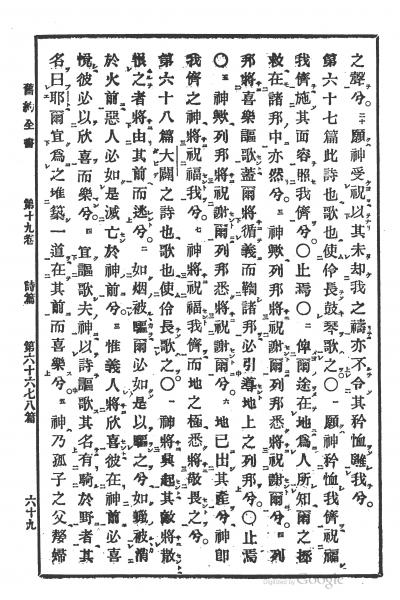 之聲兮。二十願神受祝以其未却我之禱亦不令其矜恤離我兮。
第六十七篇此詩也歌也使伶長鼓琴歌之〇一願神矜恤我儕祝福
我儕施其面容照我儕兮。〇止焉〇二俾爾途在地爲人所知爾之拯
救在諸邦中亦然兮。三神歟列邦將祝謝爾列邦悉將祝謝爾兮。四列
邦將喜樂謳歌蓋爾將循義而鞫諸邦必引導地上之列邦兮。〇止焉
〇五神歟列邦將祝謝爾列邦悉將祝謝爾兮。六地已出其產兮神即
我儕之神將祝福我兮。七神將祝福我儕而地之極悉將敬畏之兮
第六十八篇大闢之詩也歌也使伶長歌之〇一神將興起其敵將散
恨之者將由其前而逃兮。二如烟被驅爾必如是以驅之兮如蠟被消
於火前惡人必如是滅亡於神前兮。三惟義人將欣喜彼在神前必喜
悅彼必以欣喜而樂兮。四宜謳歌夫神以詩謳歌其名有騎於野者其
名曰耶爾宜爲之堆築一道在其前而喜樂兮。五神乃孤子之父嫠婦
舊約全書 第十九卷 詩篇 第六十六七八篇 六十九
Digitized by Google